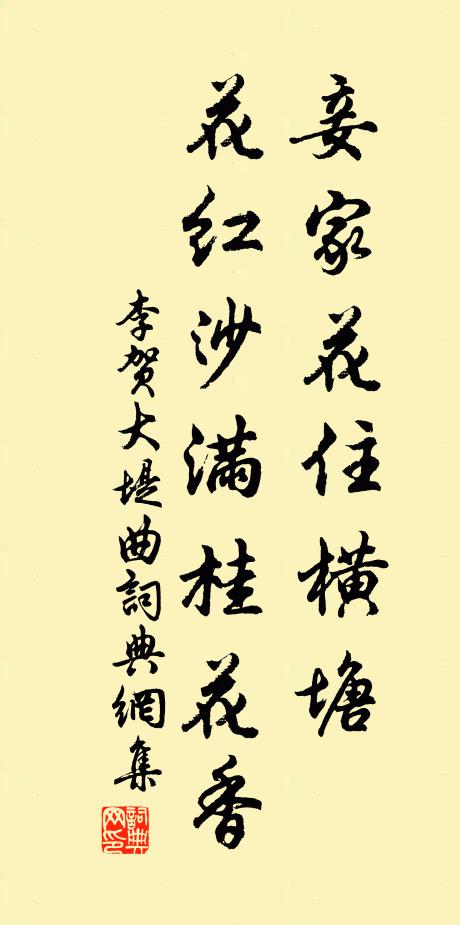 妾家花住橫塘
花紅沙滿桂花香
李賀大堤曲詞典網集
詞典网印